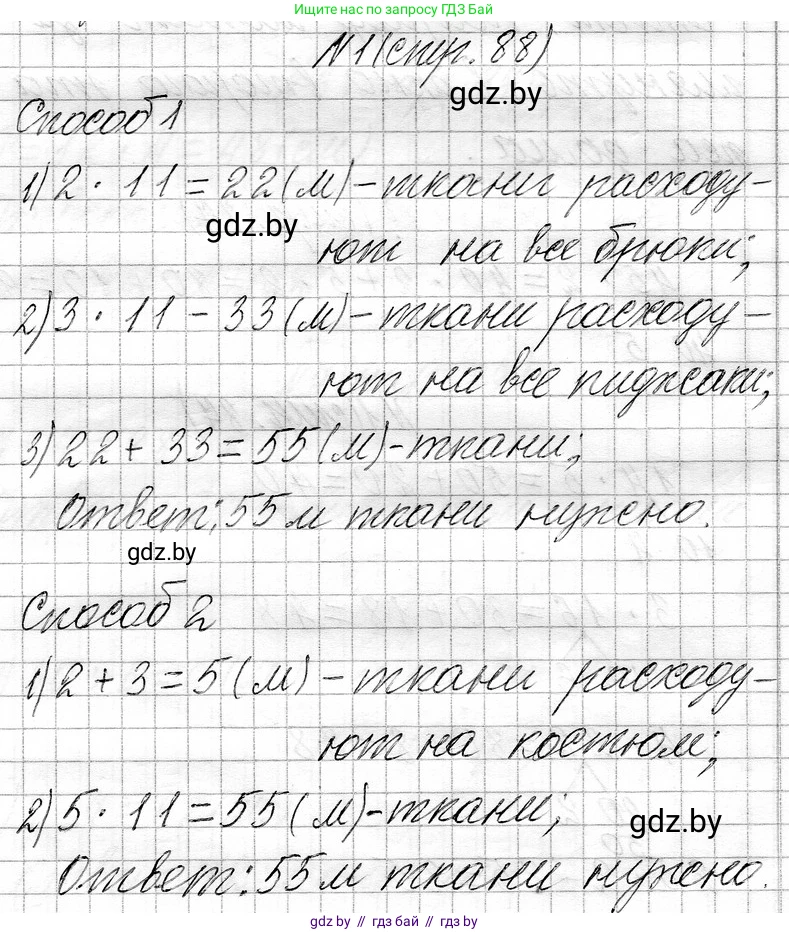 Ищите нас по запросу ГДЗ Бай
N1(стр. 88)
gdz.by
Способ 1
1) 2 · 11 = 22 (м) - ткани расходу-
gdz.by
ют на все брюки;
2) 3 · 11 - 33 (м) - ткани расходу-
ют на все пиджаки;
3) 22 + 33 = 55 (м) - ткани;
Ответ: 55 м ткани нужно.
gdz.by
Способ 2
1) 2 + 3 = 5 (м) - ткани расходу-
ют на костюм;
2) 5 · 11 = 55 (м) - ткани;
gdz.by
Ответ: 55 м ткани нужно.
gdz by // гдз бай // gdz by